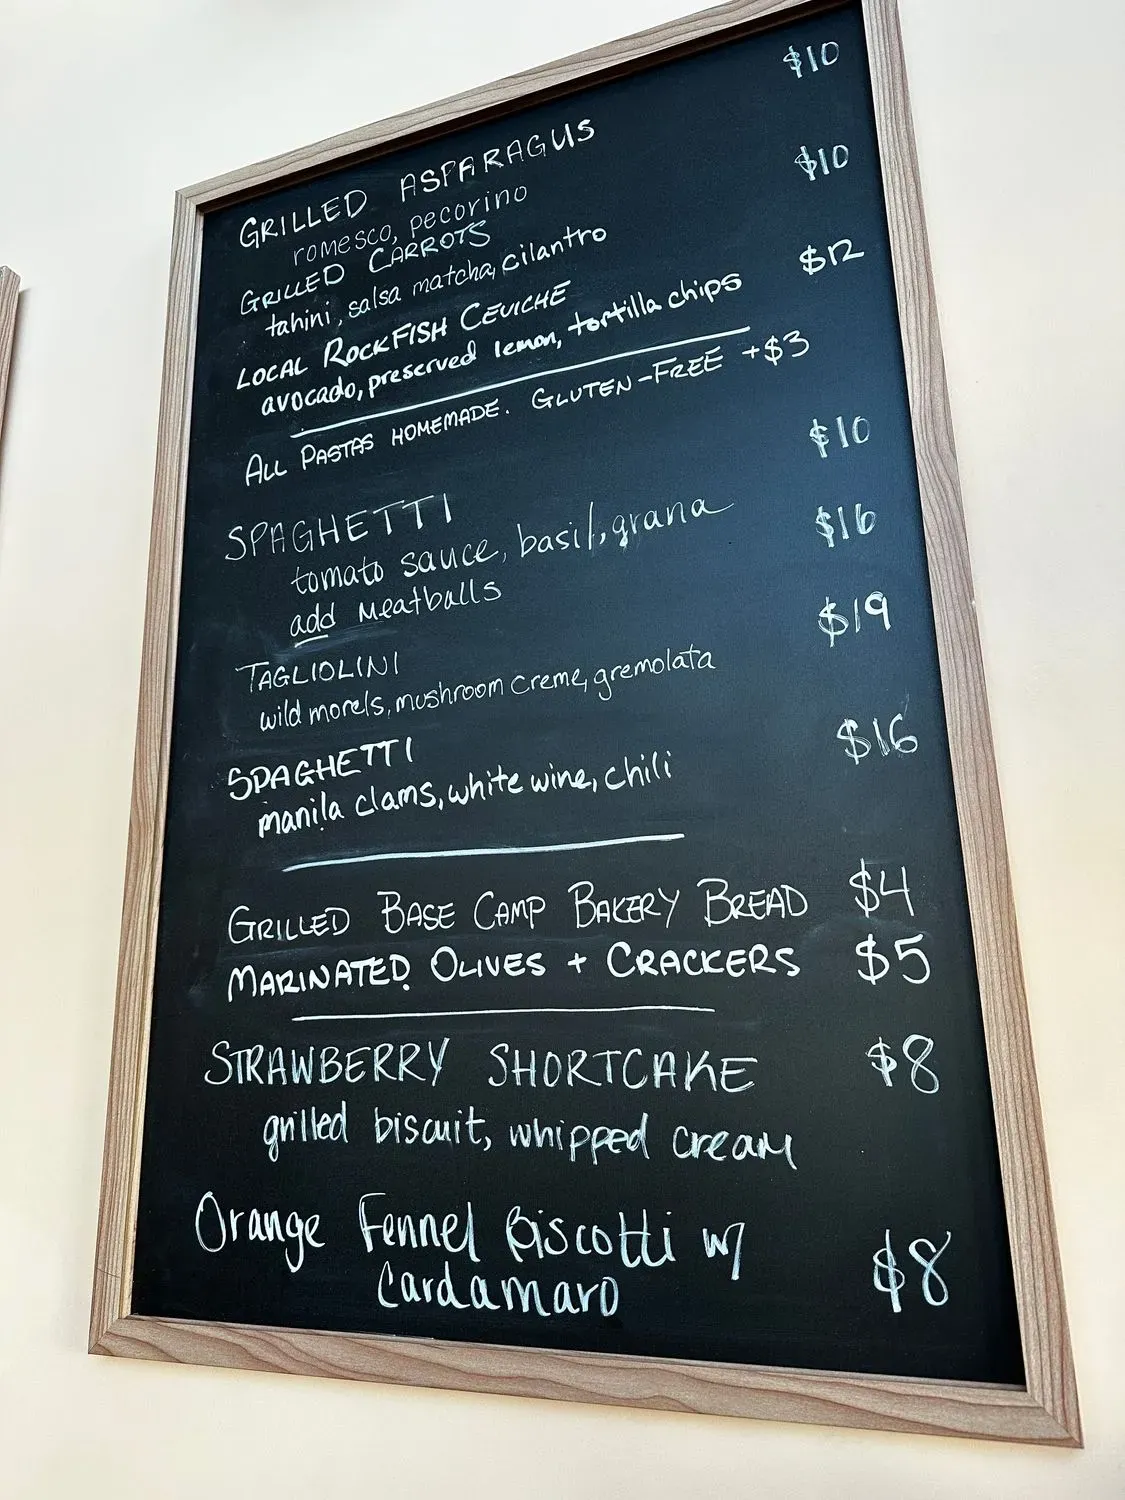 GRILLED ASPARAGUS $10
romesco, pecorino
GRILLED CARROTS $10
tahini, salsa matcha, cilantro
LOCAL ROCKFISH CEVICHE $12
avocado, preserved lemon, tortilla chips
ALL PASTAS HOMEMADE. GLUTEN-FREE +$3
SPAGHETTI $10
tomato sauce, basil, grana
add meatballs $16
TAGLIOLINI $19
wild morels, mushroom creme, gremolata
SPAGHETTI $16
manila clams, white wine, chili
GRILLED BASE CAMP BAKERY BREAD $4
MARINATED OLIVES + CRACKERS $5
STRAWBERRY SHORTCAKE $8
grilled biscuit, whipped cream
Orange Fennel Biscotti w/
Cardamaro $8